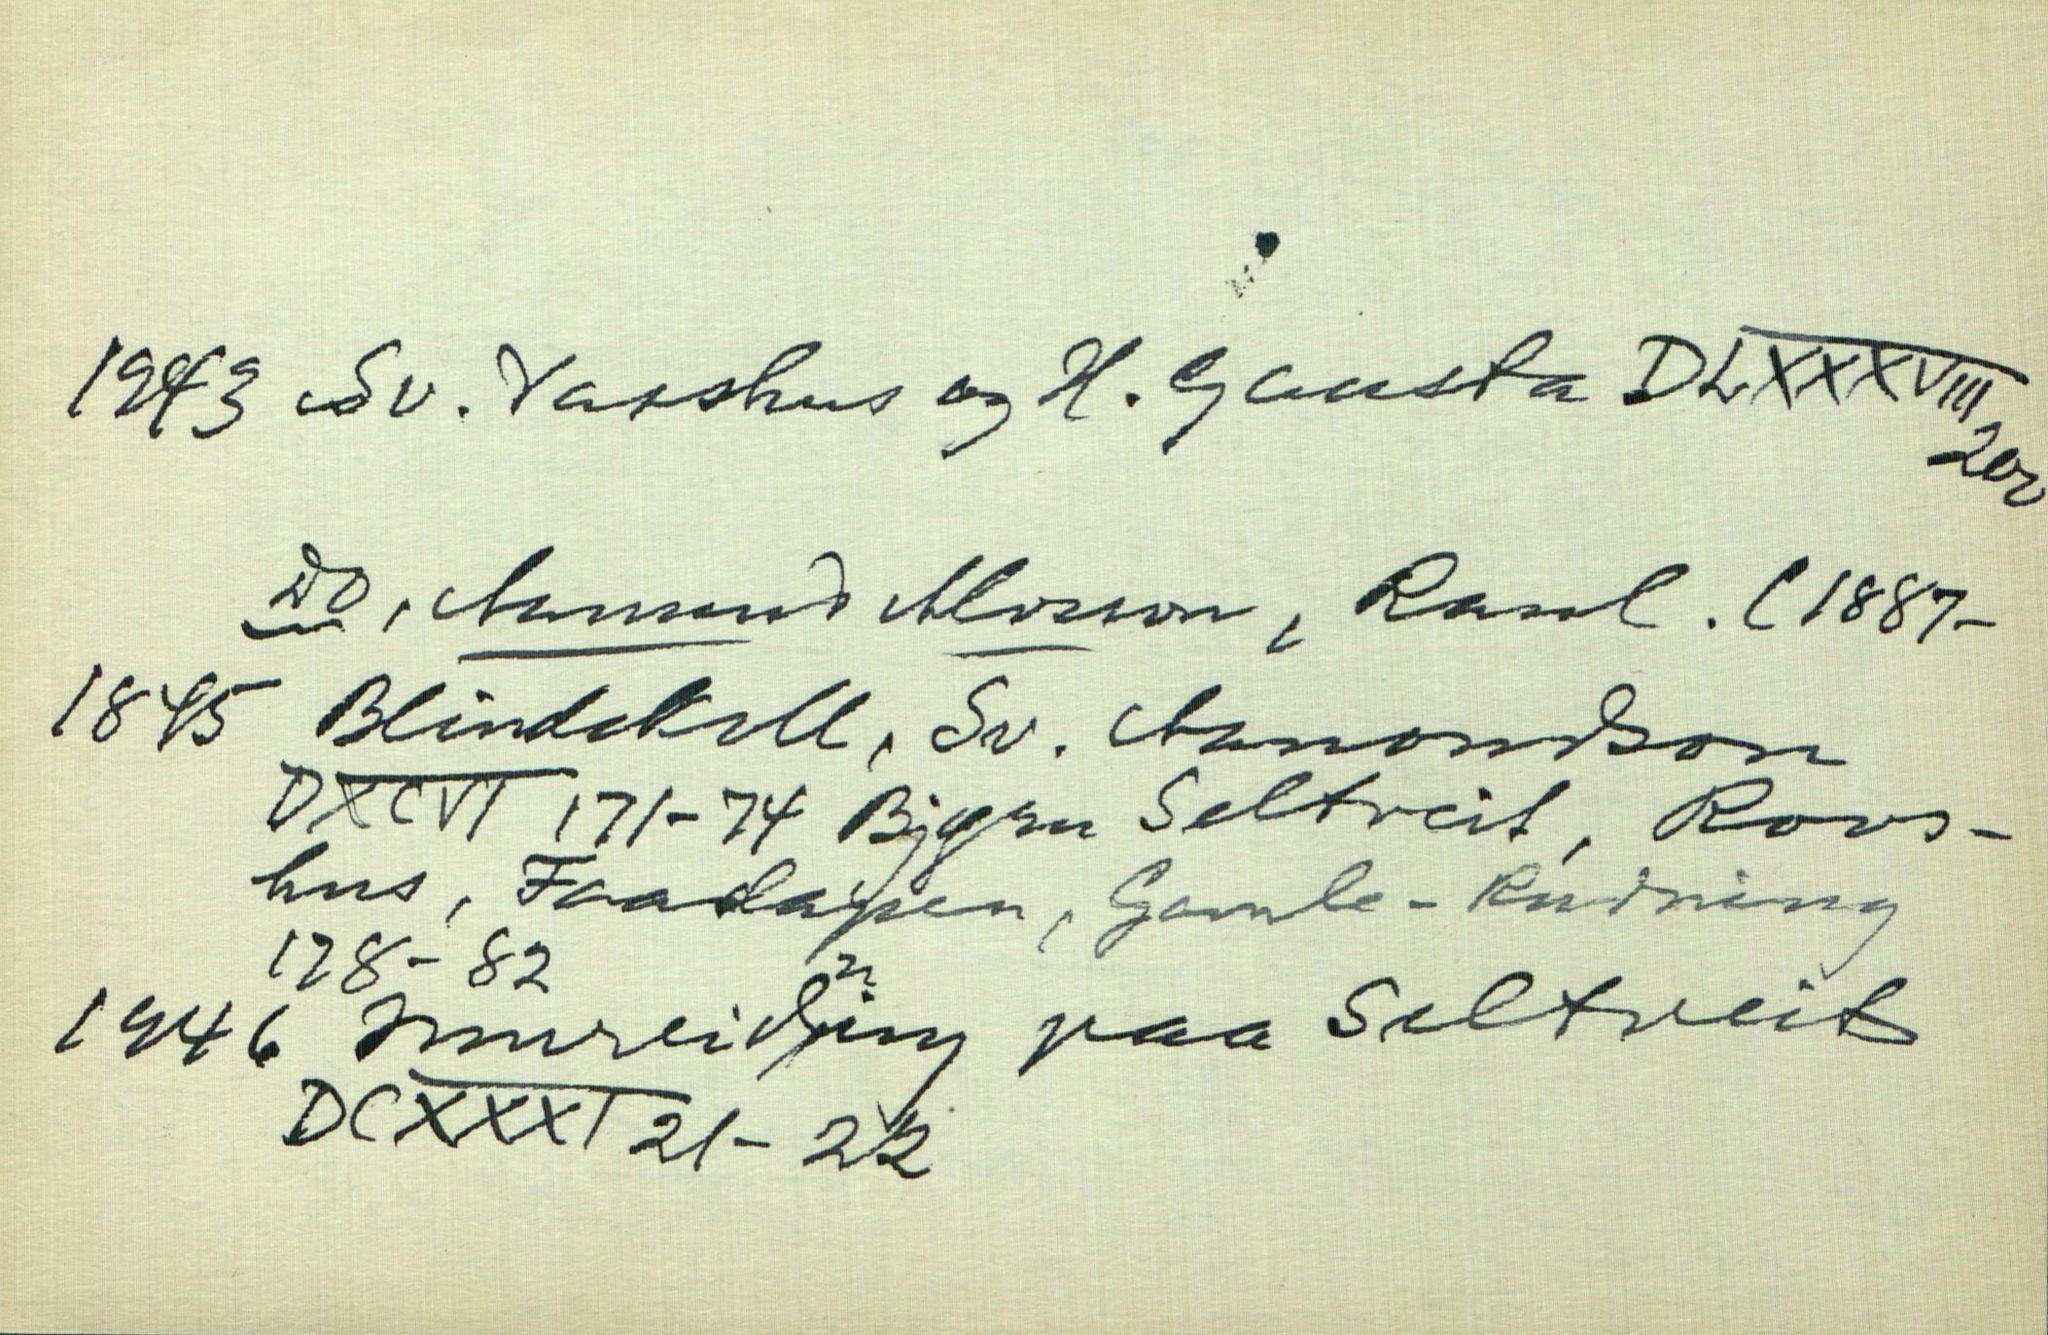 1943 Sv. Vasshus og H. Gausta DLXXXVIII
202
Do, Aamund Alvsson, Raul. (1887-
1845 Blindekall, Sv. Aamondson
DXCVI 171-74 Bjørn Seltveit, Rovs-
hus, Faadøyen, Gamle-Rudning
178-82
1946 Innreiding paa Seltveit
DCXXXI 21-22